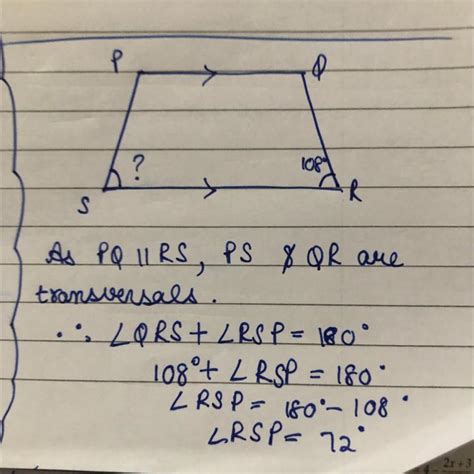 P Q
? 108°
S R
As PQ || RS, PS & QR are
transversals.
∴ ∠QRS + ∠RSP = 180°
108° + ∠RSP = 180°
∠RSP = 180° - 108°
∠RSP = 72°
2x+3